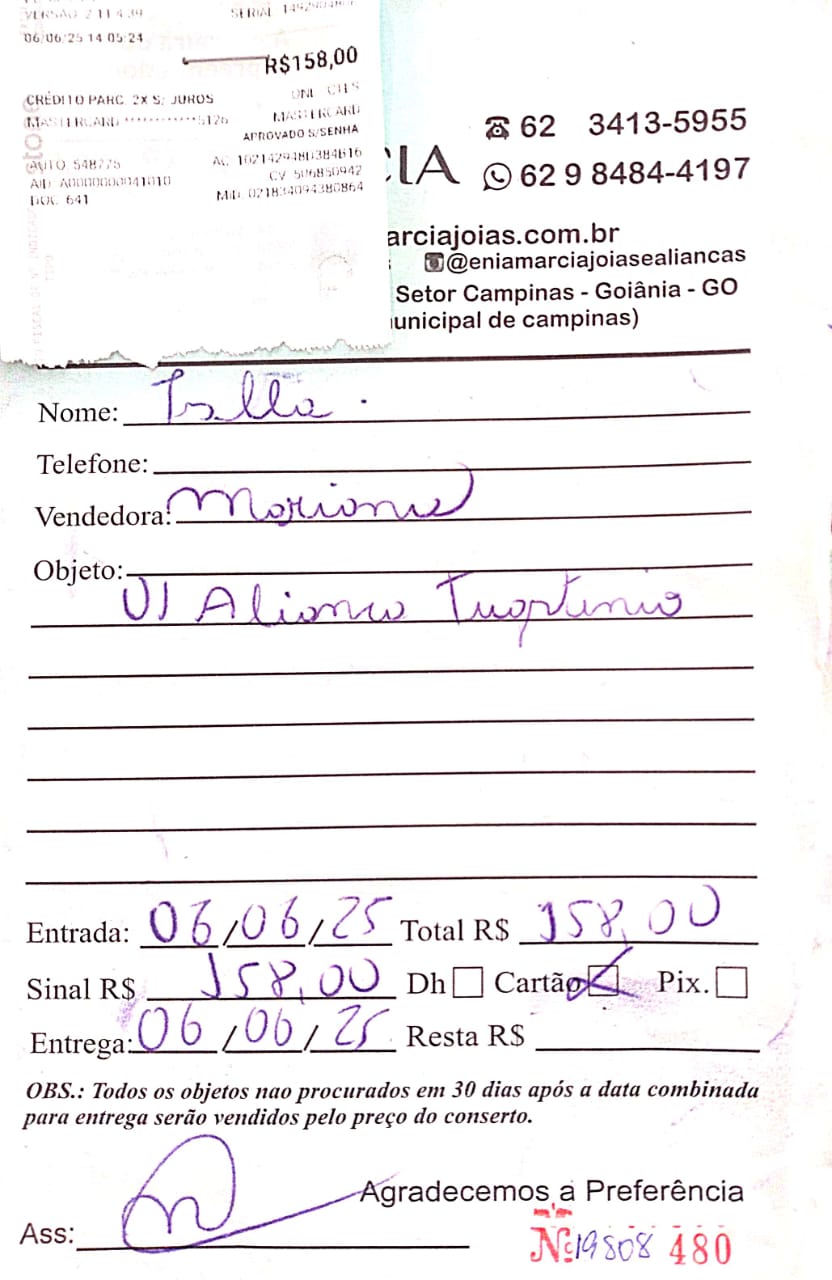 VERSÃO 2.11.4.39 SERIAL
06/06/25 14:05:24
R$158,00
CRÉDITO PARC. 2X S/ JUROS ONL
MASTERCARD ************5126 MASTERCARD
APROVADO S/SENHA
AUTO: 548775 AC: 1G2142948D384B16
AID: A0000000041010 CV: 506850942
DOC: 641 MID: 021834094380864
62 3413-5955
CIA
62 9 8484-4197
arciajoias.com.br
@eniamarciajoiasealiancas
Setor Campinas - Goiânia - GO
unicipal de campinas)
Nome:
Telefone:
Vendedora: Mariane
Objeto:
01 Aliança
Entrada: 06/06/25 Total R$ 158,00
Sinal R$ 158,00 Dh Cartão Pix.
Entrega: 06/06/25 Resta R$
OBS.: Todos os objetos nao procurados em 30 dias após a data combinada
para entrega serão vendidos pelo preço do conserto.
Agradecemos a Preferência
Ass:
Nº 19808 480